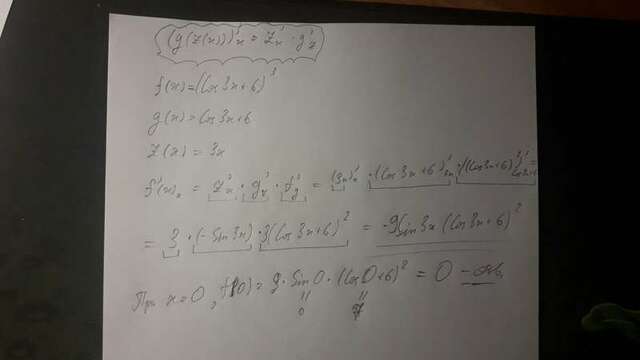 (g(z(x)))'ₓ = z'ₓ · g'_z
f(x) = (Cos3x+6)³
g(x) = Cos3x+6
z(x) = 3x
f'(x)ₓ = z'ₓ · g'ₓ · f'_g = (3x)'ₓ · (Cos3x+6)'₃ₓ · ((Cos3x+6)³)'_Cos3x+6 =
= 3 · (-Sin3x) · 3(Cos3x+6)² = -9Sin3x(Cos3x+6)²
При x=0, f'(0) = 9·Sin0·(Cos0+6)² = 0 – отв.
0 7